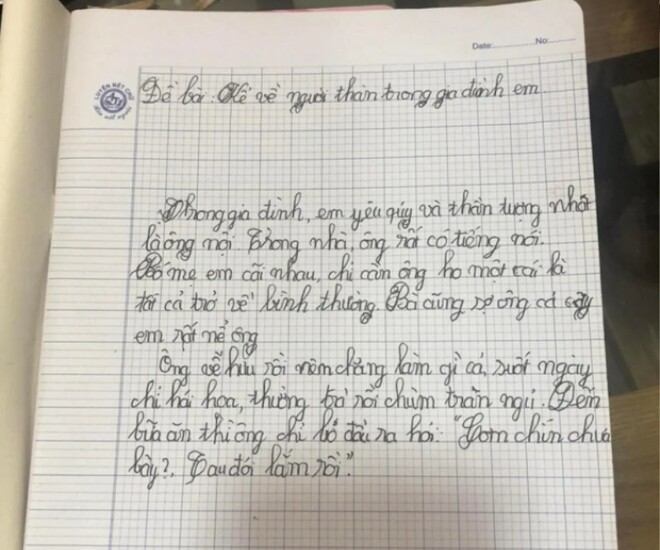 Date: No:
LUYỆN NÉT CHỮ
Đề bài: Kể về người thân trong gia đình em
Trong gia đình, em yêu qúy và thần tượng nhất
là ông nội. Trong nhà, ông rất có tiếng nói.
Bố mẹ em cãi nhau, chỉ cần ông ho một cái là
tất cả trở về bình thường. Bà cũng sợ ông
em rất nể ông
Ông về hưu rồi nên chẳng làm gì cả, suốt ngày
chỉ hái hoa, thưởng trà rồi chùm trăn ngủ. Đến
bữa ăn thì ông chỉ ló đầu ra hỏi: "Cơm chín chưa
bây?. Tau đói lắm rồi".